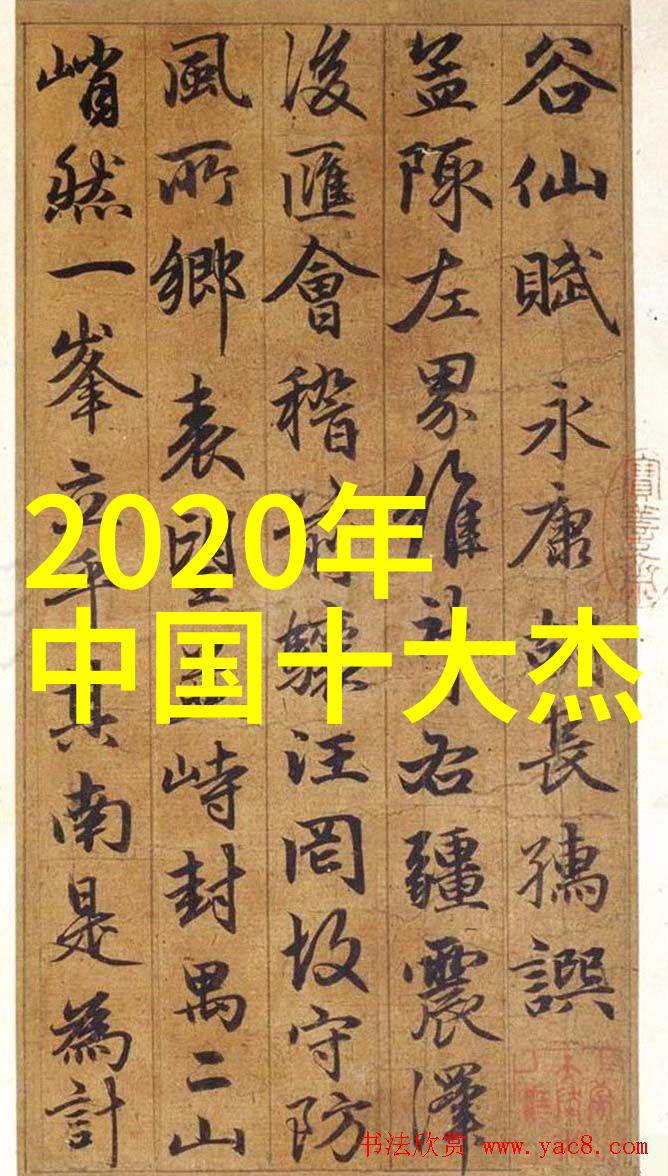 谷仙賦 永康胡長孺譔
益陳左界維右疆震澤
後匯會稽前驤汪罔故守防
風所鄉表望並峙封禺二山
峭然一峯立乎其南是為計
2020年
中国十大杰
书法欣赏 www.yac8.com